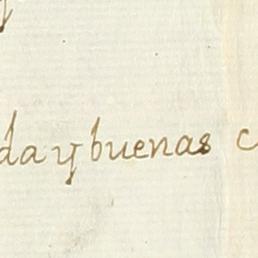 da y buenas c